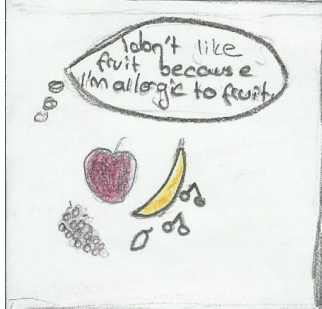 I don't like
fruit because
I'm allergic to fruit.